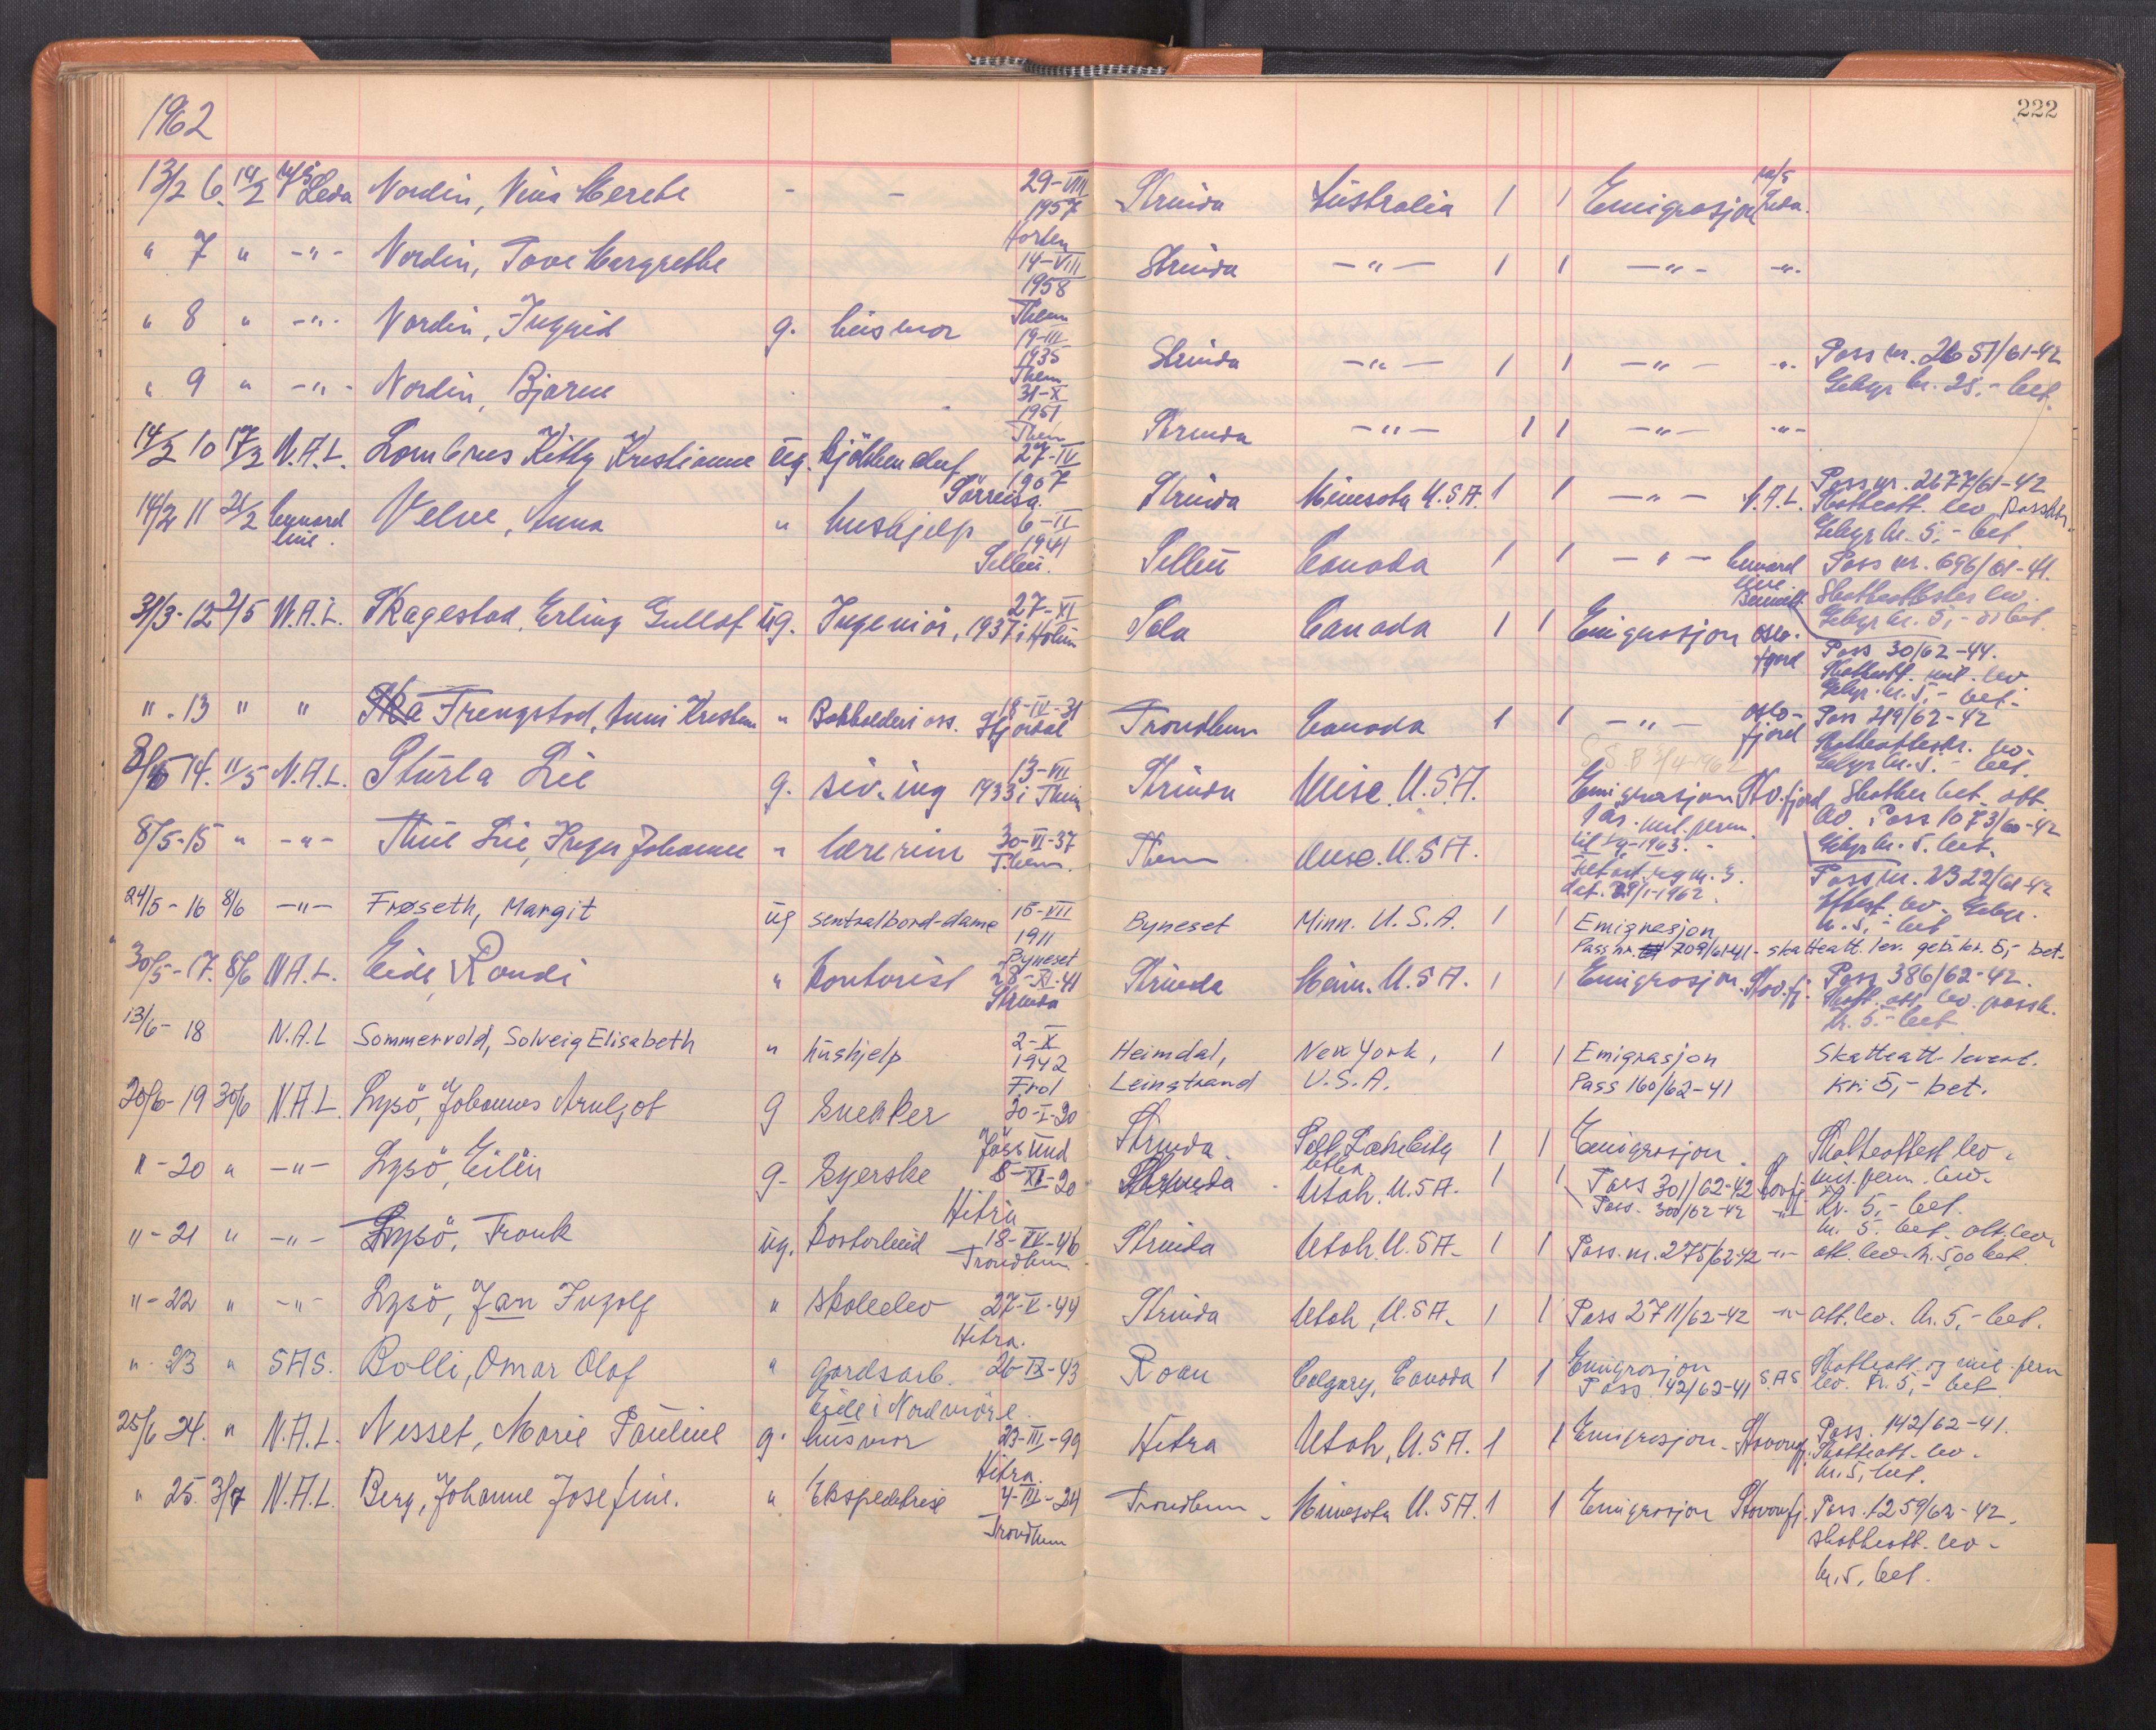 1962
222
13/2 6. 14/2 M/S Leda Nordin, Nina Merete - - 29-VIII 1957 Horten Strinda Australia 1 1 Emigrasjon m/s Leda.
" 7 " -"- Nordin, Tove Margrethe 14-VIII 1958 Them Strinda -"- 1 1 -"- -"-
" 8 " -"- Nordin, Ingrid g. husmor 19-III 1935 Them Strinda -"- 1 1 -"- -"- Pass nr. 2651/61-42
Gebyr kr. 25,- bet.
" 9 " -"- Nordin, Bjarne 31-X 1951 Them Strinda -"- 1 1 -"- -"-
14/2 10 17/2 N.A.L. Kitty Kristianne ug. 27-IV 1907 Sörreisa. Strinda Minesota U.S.A. 1 1 -"- N.A.L. Pass nr. 2677/61-42
Skatteatt. lev.
Gebyr kr. 5,- bet
14/2 11 21/2 Cunard line. Velve, Anna " hushjelp 6-II 1941 Canada 1 1 -"- Cunard line. Pass nr. 696/61-41.
Skatteattester lev.
Gebyr kr. 5,- bet.
31/3-12 2/5 N.A.L. Skagestad, Erling Gullof ug. Ingeniör, 27-XI 1937 i Holum Sola Canada 1 1 Emigrasjon Oslofjord Pass 30/62-44.
Skatteatt. mil. lev
Gebyr. kr. 5,- bet.
" . 13 " " Trengstad, Anni Kristin " Bokholderi ass. 18-IV-31 Stjördal Trondheim Canada 1 1 -"- Oslofjord Pass 219/62-42
Skatteattestr. lev.
Gebyr kr. 5.- bet.
8/5 14. 11/5 N.A.L. Sturla Lie g. siv.ing 13-VII 1933 i Them Strinda Wisc. U.S.A. Emigrasjon Stv.fjord Skatter bet. att.
lev. Pass 1073/60-42
Gebyr kr. 5. bet.
8/5-15 " -"- Thue Lie, Inger Johanne " lærerinne 30-VI-37 T.hem. Them Wisc. U.S.A.
1 års. mil. perm.
til 1/9-1963.
dat. 29/1-1962.
Pass nr. 2322/61-42
kr. 5,- bet
24/5-16 8/6 -"- Frøseth, Margit ug sentralbord-dame 15-VII 1911 Byneset Byneset Minn. U.S.A. 1 1 Emigrasjon
Pass nr. 709/61-41 - skatteatt. lev. geb. kr. 5,- bet.
30/5-17. 8/6 N.A.L. Eide, Randi " Kontorist 28-XI-41 Strinda Strinda Minn. U.S.A. 1 1 Emigrasjon. Stav.fj. Pass 386/62-42.
Skatt. att. lev. passk.
kr. 5.- bet
13/6-18 N.A.L Sommervold, Solveig Elisabeth " hushjelp 2-X 1942 Frol Heimdal, Leinstrand New York, U.S.A. 1 1 Emigrasjon
Pass 160/62-41 Skatteatt. levert.
kr. 5,- bet.
20/6-19 30/6 N.A.L. Lysö, Johannes Arnljot g Snekker 20-I-20 Jössund Strinda. Salt Lake City 1 1 Emigrasjon. Skatteattest lev.
mil. perm. lev.
"-20 " -"- Lysö, Eilin g- Syerske 8-XI-20 Hitra Strinda Utah. U.S.A. 1 1 Pass 301/62-42
Pass. 300/62-42 -"-
kr. 5,- bet.
kr. 5 bet. att. lev.
"-21 " -"- Lysö, Frank ug. 18-IV-46 Trondheim Strinda Utah U.S.A. 1 1 Pass. nr. 275/62-42 -"- att. lev. kr. 5,00 bet.
"-22 " -"- Lysö, Jan Ingolf " skoleelev 27-V-44 Hitra. Strinda Utah, U.S.A. 1 1 Pass 2711/62-42 -"- att. lev. kr. 5,- bet.
"-23 " SAS. Bolli, Omar Olaf " gardsarb. 26-IX-43 Eide i Nordmöre Roan Calgary, Canada 1 1 Emigrasjon
Pass 42/62-41 S.A.S Skatteatt. og mil. perm
lev. kr. 5,- bet
25/6 24. " N.A.L. Nesset, Marie Pauline g. husmor 23-III-99 Hitra. Hitra Utah, U.S.A. 1 1 Emigrasjon. Stavangfj. Pass. 142/62-41.
Skatteatt. lev.
kr. 5, bet.
" 25. 3/7 N.A.L. Berg, Johanne Josefine. " Ekspeditrise 4-III-24 Trondheim Trondheim. Minesota U.S.A. 1 1 Emigrasjon Stavangfj. Pass. 1259/62-42.
skatteatt. lev.
kr. 5, bet.